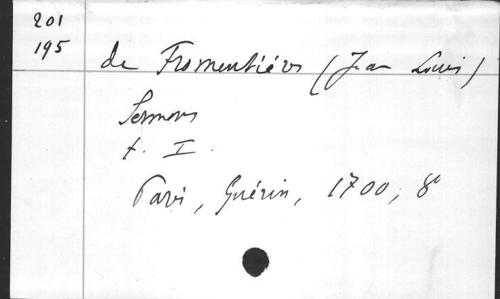 201
195
de Fromentières (Jean Louis)
Sermons
t. I.
Paris, Guérin, 1700, 8°